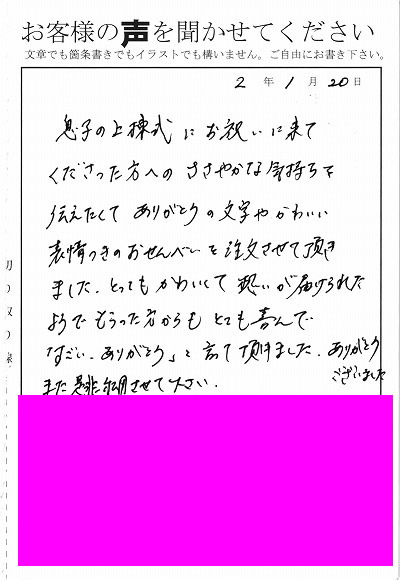 お客様の声を聞かせてください
文章でも箇条書きでもイラストでも構いません。ご自由にお書き下さい。
2年1月20日
息子の上棟式にお祝いに来て
くださった方への ささやかな気持ちを
伝えたくて ありがとうの文字や かわいい
表情つきのおせんべいを注文させて頂き
ました. とっても かわいくて 想いが届けられた
ようで もらった方からも とても喜んで
「すごい. ありがとう」と言って頂きました. ありがとう
ございました
また是非 利用させて下さい.
切り取り線